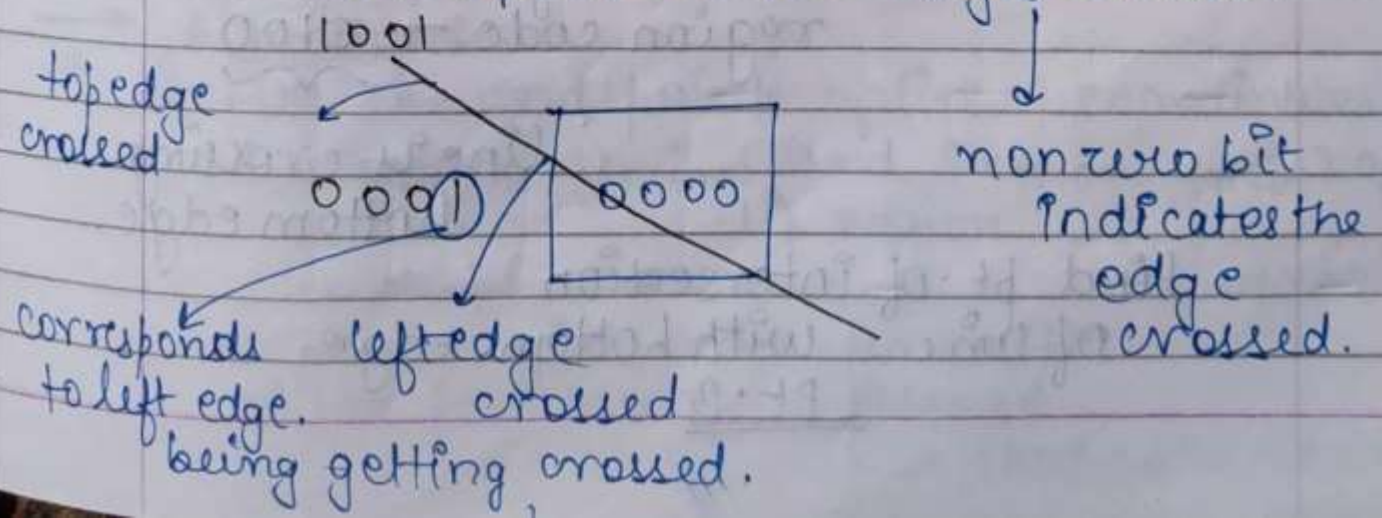 1001
top edge
crossed
0001
0000
non zero bit
indicates the
edge
crossed.
corresponds
to left edge.
being getting crossed.
left edge
crossed